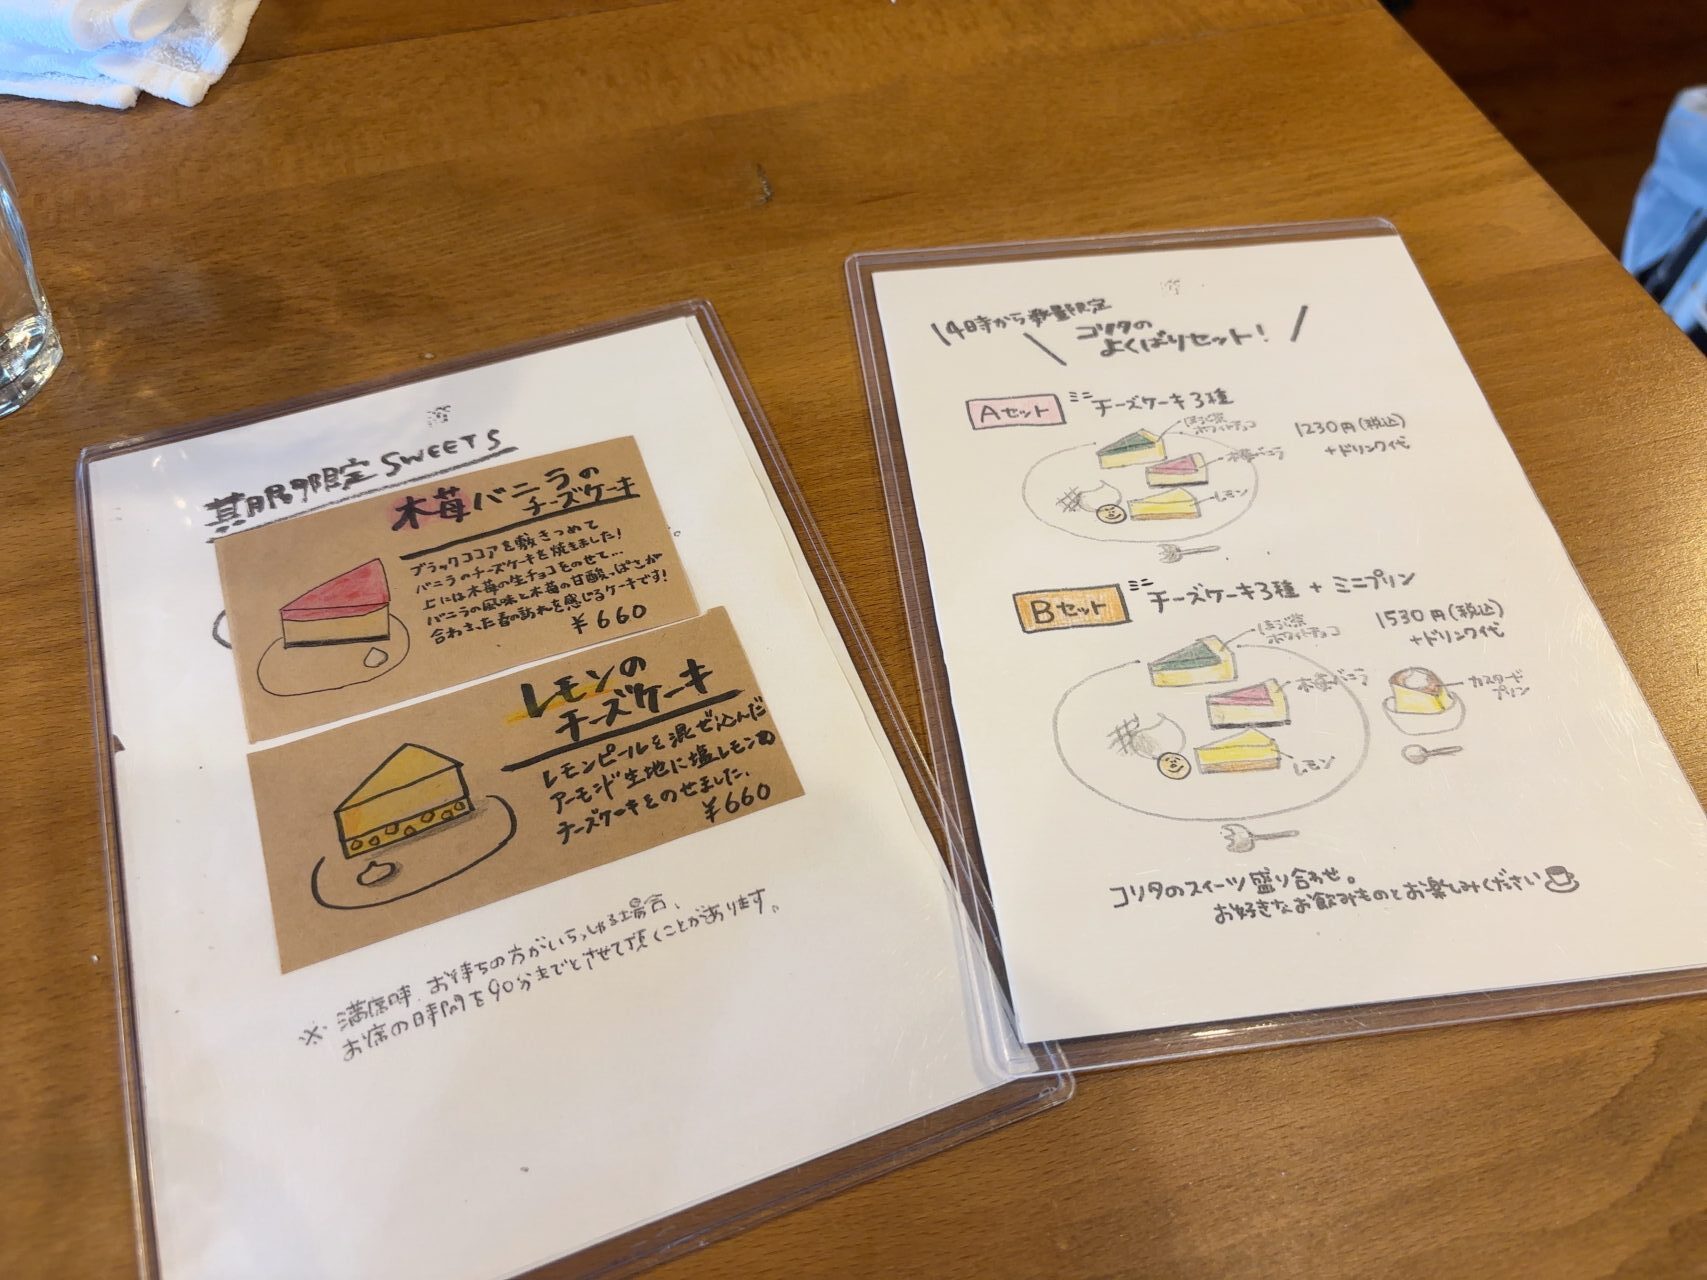 期間限定 SWEETS
木苺バニラの
チーズケーキ
ブラックココアを敷きつめて
バニラのチーズケーキを焼きました!
上には木苺の生チョコをのせて…
バニラの風味と木苺の甘酸っぱさが
合わさった春の訪れを感じるケーキです!
¥660
レモンの
チーズケーキ
レモンピールを混ぜ込んだ
アーモンド生地に塩レモンの
チーズケーキをのせました.
¥660
※ 満席時、お待ちの方がいらっしゃる場合、
お席の時間を90分までとさせて頂くことがあります。
14時から数量限定
コリタの
よくばりセット!
Aセット
ミニチーズケーキ3種
1230円(税込)
+ドリンク代
ほうじ茶
ホワイトチョコ
木苺バニラ
レモン
Bセット
ミニチーズケーキ3種 + ミニプリン
1530円(税込)
+ドリンク代
ほうじ茶
ホワイトチョコ
木苺バニラ
レモン
カスタード
プリン
コリタのスイーツ盛り合わせ。
お好きなお飲みものとお楽しみください